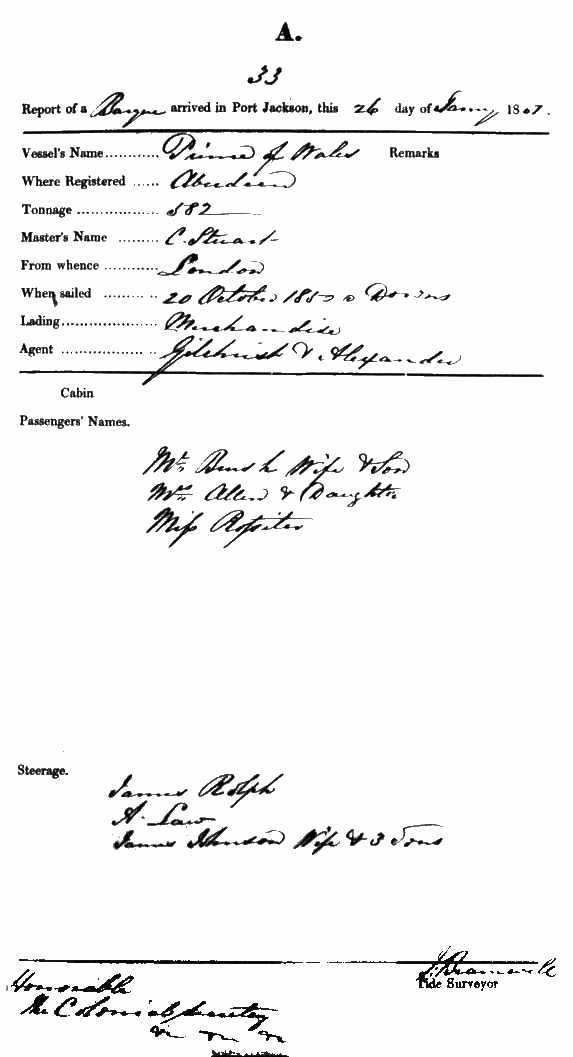 A.
33
Report of a Barque arrived in Port Jackson, this 26 day of Jany 1851.
Vessel's Name ............ Prince of Wales Remarks
Where Registered ...... Aberdeen
Tonnage .................. 582
Master's Name ......... C. Stuart
From whence ............ London
When sailed ......... .. 20 October 1850 Downs
Lading..................... Merchandise
Agent .................. .. Gilchrist & Alexander
Cabin
Passengers' Names.
Mr. Brush Wife & Son
Mrs. Allen & Daughter
Miss Rossiter
Steerage.
James Rolph
A. Law
James Johnson Wife & 3 Sons
Tide Surveyor
Honorable
The Colonial Secretary